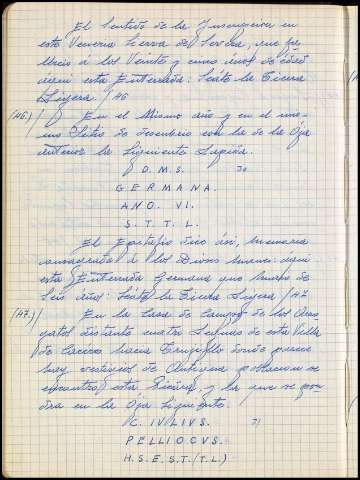 El Sentido de la Inscripcion en
esta Veneria Sierva de Severa, que fa-
llecio á los Veinte y cinco años de edad
aqui esta Enterrada: Seáte la Tierra
Ligera. /46
(46.)/ En el Mismo año y en el mis-
mo Sitio se descubrio con la de la Oja
anterior la Siguiente Lapida.
D. M. S. 70
G E R M A N A.
A N O. VI.
S. T. T. L.
El Epitafio dice ási, memoria
consagrada á los Dioses manes: áqui
esta Enterrada Germana que murio de
Seis años: Seáte la Tierra Ligera /47
(47.)/ En la Casa de Campo de los Ara-
gatos distante cuatro Leguas de esta Villa
de Caceres hacia Trugillo donde parece
hay vestigios de Antigua poblacion se
encontro esta Piedra, y la que se pon-
dra en la Oja Siguiente.
C. I V L I V S. 71
P E L L I O C V S.
H. S. E. S. T. (T. L.)